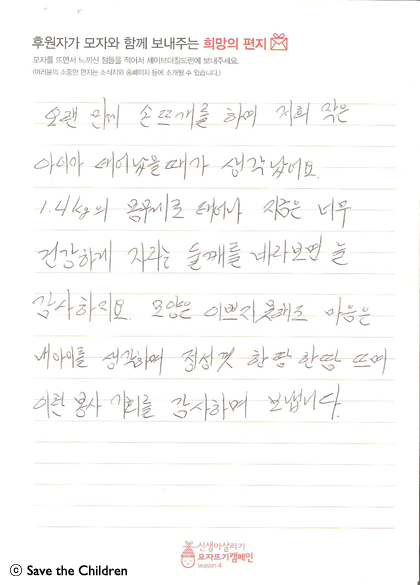 후원자가 모자와 함께 보내주는 희망의 편지
모자를 뜨면서 느끼신 점들을 적어서 세이브더칠드런에 보내주세요.
(여러분의 소중한 편지는 소식지와 홈페이지 등에 소개될 수 있습니다.)
오랜 만에 손뜨개를 하며 저희 작은
아이가 태어났을때가 생각났어요.
1.4kg의 몸무게로 태어나 지금은 너무
건강하게 자라는 둘째를 바라보면 늘
감사하지요. 모양은 이쁘지못해도 마음은
내아이를 생각하며 정성껏 한땀 한땀 뜨며
이런 봉사 기회를 감사하며 보냅니다.
신생아살리기
모자뜨기캠페인
season 4
ⓒ Save the Children